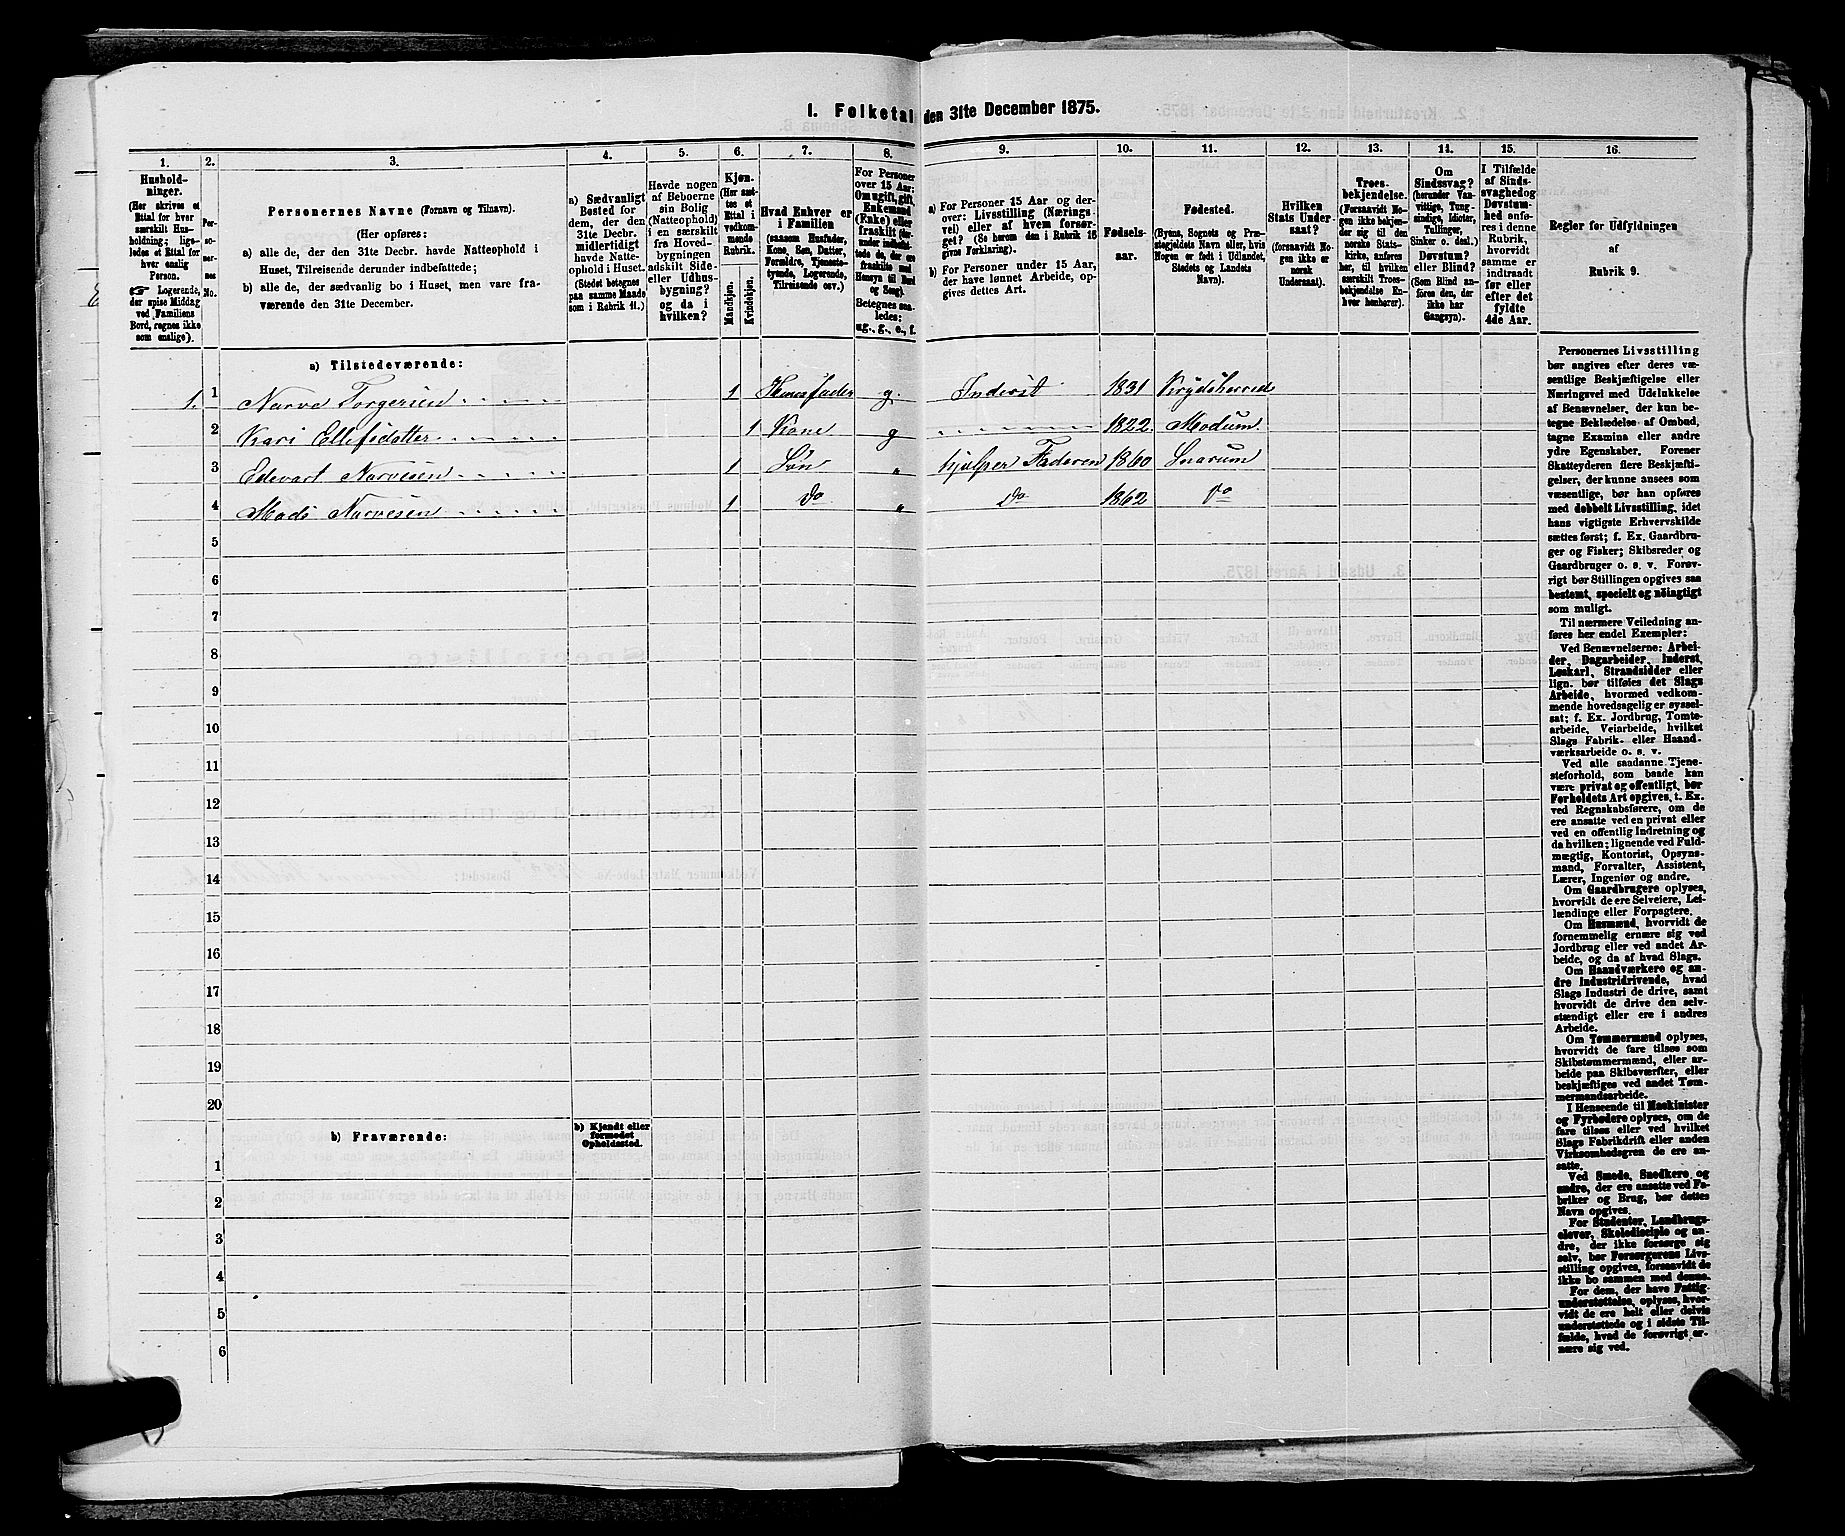 I. Folketal den 31te December 1875.
1. 2. 3. 4. 5. 6. 7. 8. 9. 10. 11. 12. 13. 14. 15. 16.
Hushold-
ninger.
(Her skrives et
Ettal for hver
særskilt Hus-
holdning; lige-
ledes et Ettal for
hver enslig
Person.
☞ Logerende,
der spise Middag
ved Familiens
Bord, regnes ikke
som enslige).
Per-
so-
ner-
nes
No.
Personernes Navne (Fornavn og Tilnavn).
(Her opføres:
a) alle de, der den 31te Decbr. havde Natteophold i
Huset, Tilreisende derunder indbefattede;
b) alle de, der sædvanlig bo i Huset, men vare fra-
værende den 31te December.
a) Sædvanligt
Bosted for
dem, der den
31te Decbr.
midlertidigt
havde Natte-
ophold i Huset.
(Stedet betegnes
paa samme Maade
som i Rubrik 11.)
Havde nogen
af Beboerne
sin Bolig
(Natteophold)
i en særskilt
fra Hoved-
bygningen
adskilt Side-
eller Udhus-
bygning?
og da i
hvilken?
Kjøn.
(Her sæt-
tes et
Ettal i
vedkom-
mende
Rubrik.
Mandkjøn.
Kvindekjøn.
Hvad Enhver er
i Familien
(saasom Husfader,
Kone, Søn, Datter,
Forældre, Tjeneste-
tyende, Logerende,
Tilreisende osv.)
For Personer
over 15 Aar:
Om ugift, gift,
Enkemand
(Enke) eller
fraskilt (der-
under indbefat-
tede de, der ere
fraskilte med
Hensyn til Bord
og Seng).
Betegnes saa-
ledes:
ug., g., e., f.
a) For Personer 15 Aar og der-
over: Livsstilling (Nærings-
vei) eller af hvem forsør-
get? (Se herom den i Rubrik 16
givne Forklaring).
b) For Personer under 15 Aar,
der have lønnet Arbeide, op-
gives dettes Art.
Fødsels-
aar.
Fødested.
(Byens, Sognets og Præ-
stegjeldets Navn eller, hvis
Nogen er født i Udlandet,
Stedets og Landets
Navn).
Hvilken
Stats Under-
saat?
(forsaavidt No-
gen ikke er
norsk
Undersaat).
Troes-
bekjendelse.
(Forsaavidt No-
gen ikke bekjen-
der sig til den
norske Stats-
kirke, anføres
her, til hvilken
særskilt Troes-
bekjendelse En-
hver henhører).
Om
Sindssvag?
(herunder Van-
vittige, Tung-
sindige, Idioter,
Tullinger,
Sinker o. desl.)
Døvstum?
eller Blind?
(Som Blind an-
føres den, der
ikke har
Gangsyn).
I Tilfælde
af Sinds-
svaghed og
Døvstum-
hed anfø-
res i denne
Rubrik,
hvorvidt
samme er
indtraadt
før eller
efter det
fyldte
4de Aar.
Regler for Udfyldningen
af
Rubrik 9.
a) Tilstedeværende:
1. 1 Narve Torgersen 1 Huusfader g. Inderst 1831 Krydsherred
2 Kari Ellefsdatter 1 Kone g 1822. Modum
3 Edevart Narvesen 1 Søn „ hjælper Faderen 1860 Snarum
4 Mads Narvesen 1 do „ do 1862 do
5
6
7
8
9
10
11
12
13
14
15
16
17
18
19
20
b) Fraværende:
b) Kjendt eller
formodet
Opholdssted.
1
2
3
4
5
6
Personernes Livsstilling
bør angives efter deres væ-
sentlige Beskjæftigelse eller
Næringsvei med Udelukkelse
af Benævnelser, der kun be-
tegne Beklædelse af Ombud,
tagne Examina eller andre
ydre Egenskaber. Forener
Skatteyderen flere Beskjæfti-
gelser, der kunne ansees som
væsentlige, bør han opføres
med dobbelt Livsstilling, idet
hans vigtigste Erhvervskilde
sættes først; f. Ex. Gaardbru-
ger og Fisker; Skibsreder og
Gaardbruger o. s. v. Forøv-
rigt bør Stillingen opgives saa
bestemt, specielt og nøiagtigt
som muligt.
Til nærmere Veiledning an-
føres her endel Exempler:
Ved Benævnelserne: Arbei-
der, Dagarbeider, Inderst,
Løskarl, Strandsidder eller
lign. bør tilføies det Slags
Arbeide, hvormed vedkom-
mende hovedsagelig er syssel-
sat; f. Ex. Jordbrug, Tomte-
arbeide, Veiarbeide, hvilket
Slags Fabrik- eller Haand-
værksarbeide o. s. v.
Ved alle saadanne Tjene-
steforhold, som baade kan
være privat og offentligt, bør
Forholdets Art opgives, t. Ex.
ved Regnskabsførere, om de
ere ansatte ved en privat eller
ved en offentlig Indretning og
da hvilken; lignende ved Fuld-
mægtig, Kontorist, Opsyns-
mand, Forvalter, Assistent,
Lærer, Ingeniør og andre.
Om Gaardbrugere oplyses,
hvorvidt de ere Selveiere, Lei-
lændinge eller Forpagtere.
Om Husmænd, hvorvidt de
fornemmelig ernære sig ved
Jordbrug eller ved andet Ar-
beide, og da af hvad Slags.
Om Haandværkere og an-
dre Industridrivende, hvad
Slags Industri de drive, samt
hvorvidt de drive den selv-
stændigt eller ere i andres
Arbeide.
Om Tømmermænd oplyses,
hvorvidt de fare tilsøs som
Skibstømmermænd, eller ar-
beide paa Skibsværfter, eller
beskjæftiges ved andet Tøm-
mermandsarbeide.
I Henseende til Maskinister
og Fyrbødere oplyses, om de
fare tilsøs eller ved hvilket
Slags Fabrikdrift eller anden
Virksomhedsgren de ere an-
satte.
Ved Smede, Snedkere og
andre, der ere ansatte ved Fa-
briker og Brug, bør dettes
Navn opgives.
For Studenter, Landbrugs-
elever, Skoledisciple og an-
dre, der ikke forsørge sig
selv, bør Forsørgerens Livs-
stilling opgives, forsaavidt de
ikke bo sammen med denne.
For dem, der have Fattig-
understøttelse, oplyses, hvor-
vidt de ere helt eller delvis
understøttede og i sidste Til-
fælde, hvad de forøvrigt er-
nære sig ved.